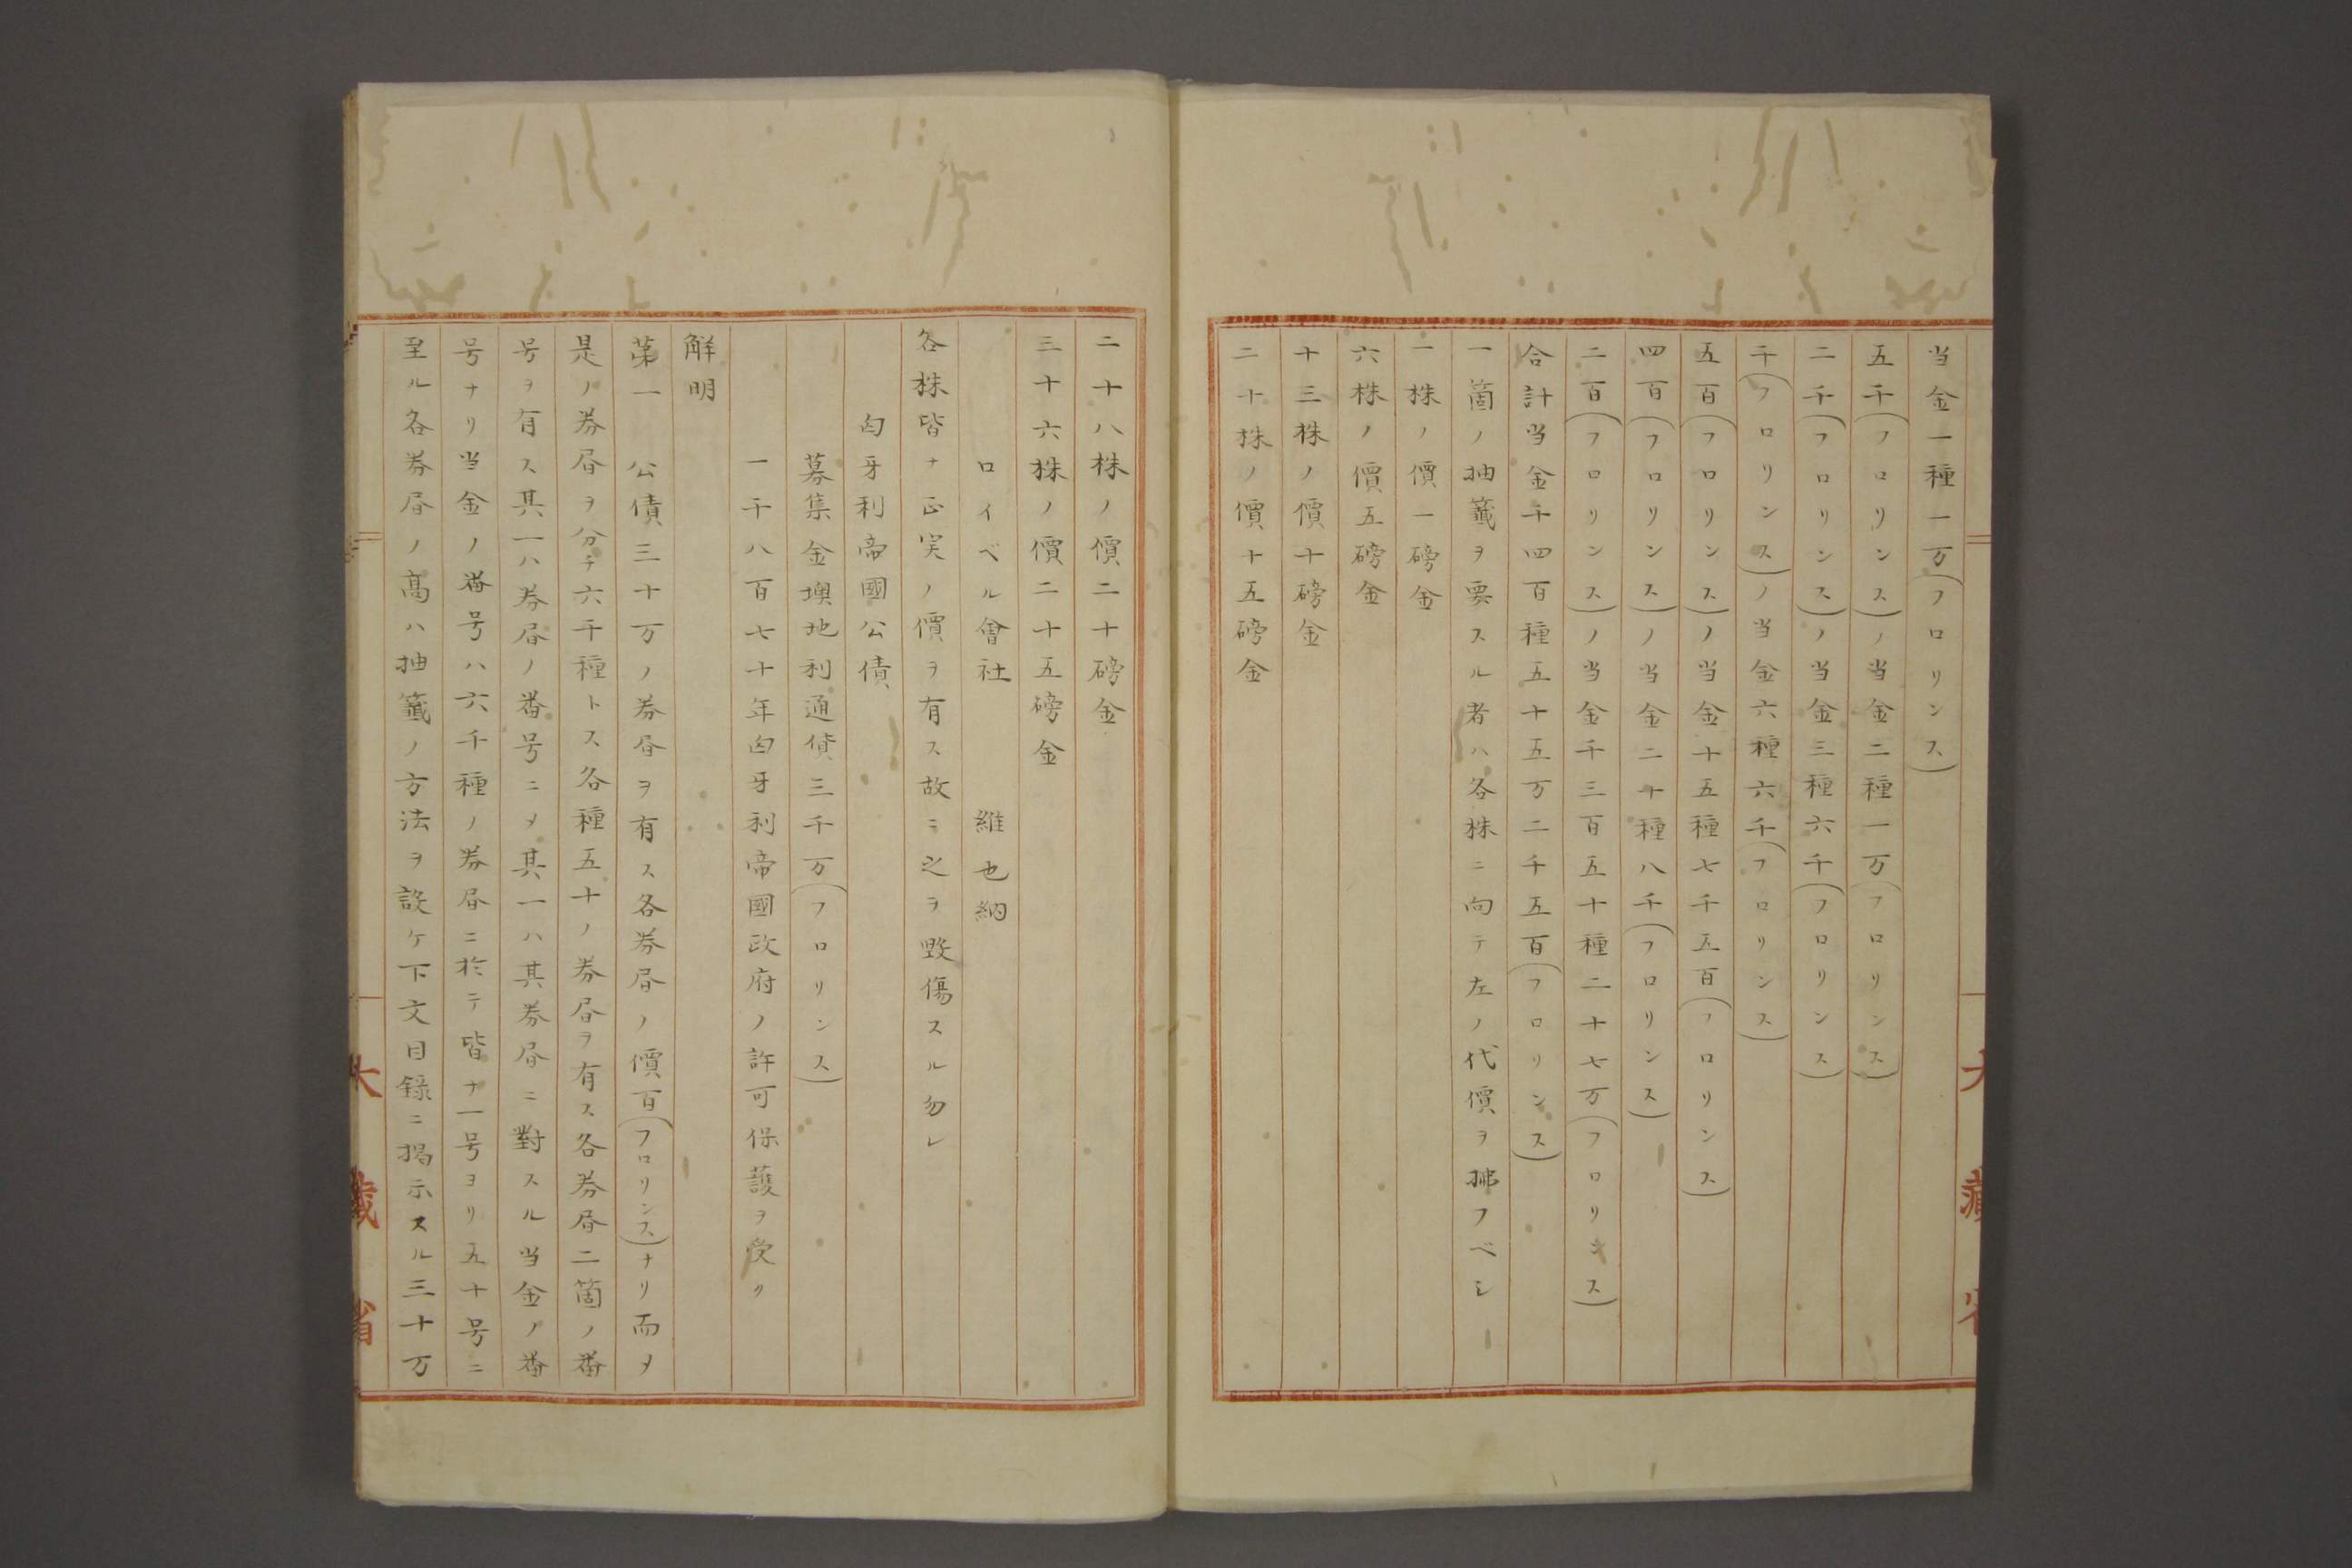 当金一種一万(フロリンス)
五千(フロリンス)ノ当金二種一万(フロリンス)
二千(フロリンス)ノ当金三種六千(フロリンス)
千(フロリンス)ノ当金六種六千(フロリンス)
五百(フロリンス)ノ当金十五種七千五百(フロリンス)
四百(フロリンス)ノ当金二十種八千(フロリンス)
二百(フロリンス)ノ当金千三百五十種二十七万(フロリンス)
合計当金千四百種五十五万二千五百(フロリンス)
一箇ノ抽籤ヲ要スル者ハ各株ニ向テ左ノ代價ヲ拂フベシ
一株ノ價一磅金
六株ノ價五磅金
十三株ノ價十磅金
二十株ノ價十五磅金
二十八株ノ價二十磅金
三十六株ノ價二十五磅金
ロイベル會社 維也納
各株皆ナ正実ノ價ヲ有ス故ニ之ヲ毀傷スル勿レ
匈牙利帝國公債
募集金墺地利通貨三千万(フロリンス)
一千八百七十年匈牙利帝國政府ノ許可保護ヲ受ク
解明
第一 公債三十万ノ券㫘ヲ有ス各券㫘ノ價百(フロリンス)ナリ而ヲ
是ノ券㫘ヲ分チ六千種トス各種五十ノ券㫘ヲ有ス各券㫘二箇ノ番
号ヲ有ス其一ハ券㫘ノ番号ニヲ其一ハ其券㫘ニ對スル当金ノ番
号ナリ当金ノ番号ハ六千種ノ券㫘ニ於テ皆ナ一号ヨリ五十号ニ
至ル各券㫘ノ高ハ抽籤ノ方法ヲ設ケ下文目録ニ掲示スル三十万
大藏省
大藏省